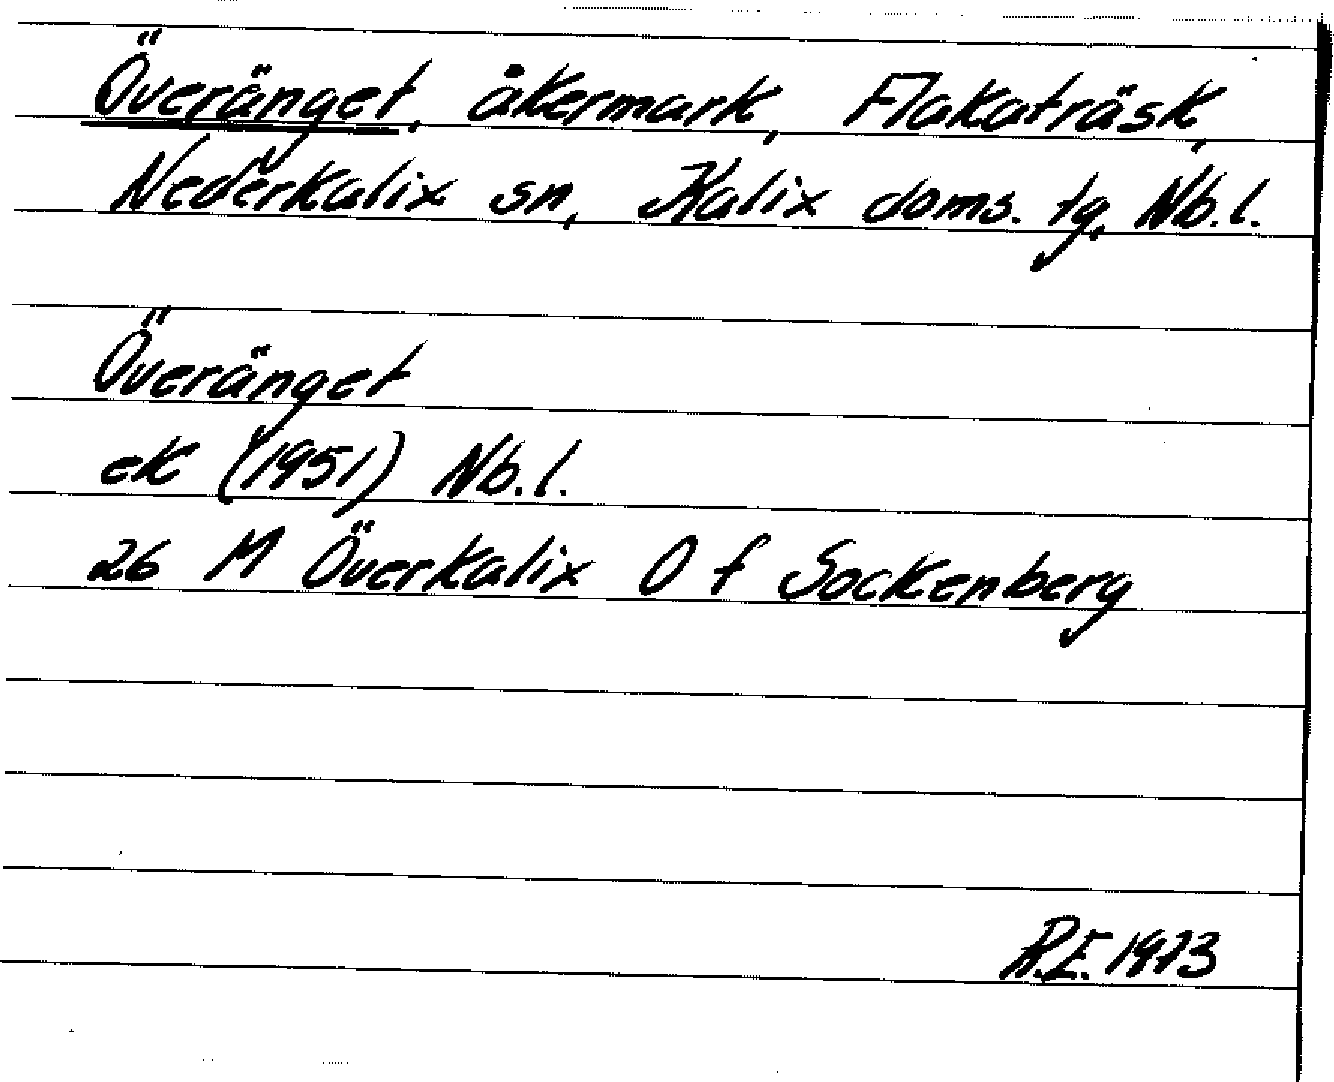 Överänget, åkermark, Flakaträsk,
Nederkalix sn, Kalix doms. tg, Nb.l.
Överänget
ek (1951) Nb.l.
26 M Överkalix O f Sockenberg
R.E. 1973